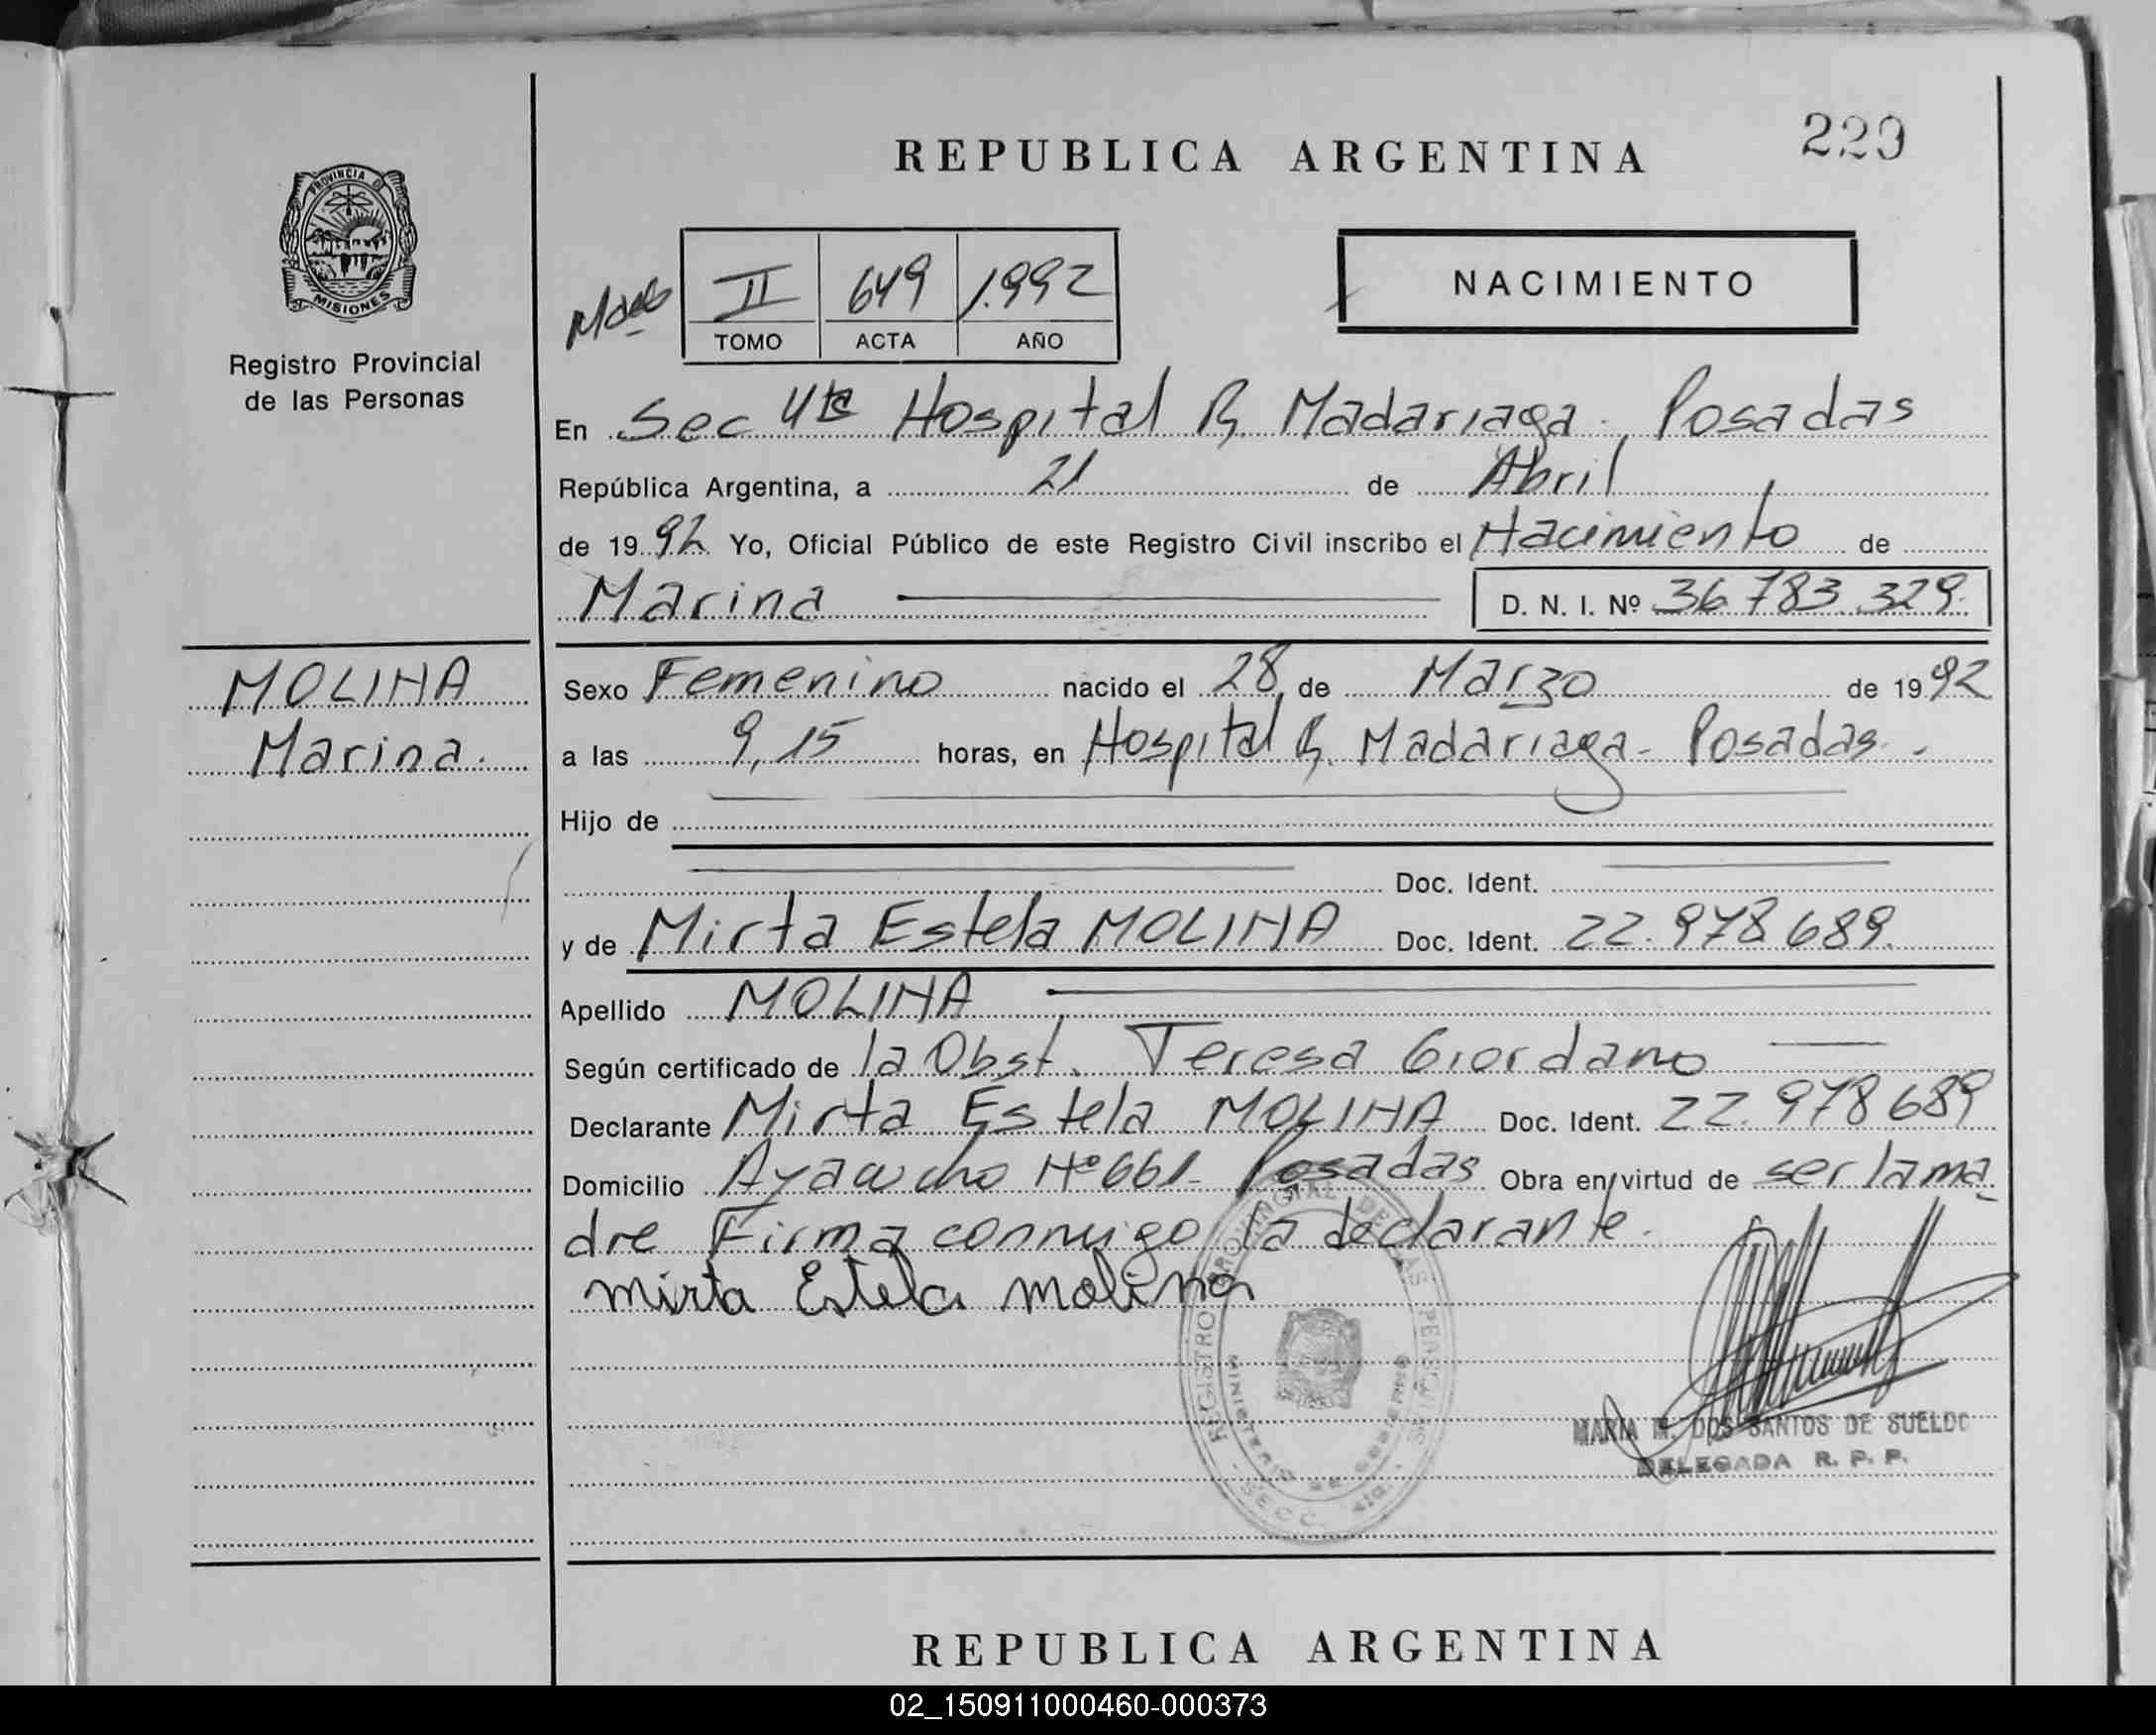 REPUBLICA ARGENTINA
229
PROVINCIA D
MISIONES
Registro Provincial
de las Personas
II 649 1.992
TOMO ACTA AÑO
NACIMIENTO
En Sec 4ta Hospital R. Madariaga. Posadas
República Argentina, a 21 de Abril
de 1992 Yo, Oficial Público de este Registro Civil inscribo el Nacimiento de
Marina D. N. I. Nº 36.783.329.
MOLINA
Marina.
Sexo Femenino nacido el 28 de Marzo de 1992
a las 9,15 horas, en Hospital R. Madariaga - Posadas.
Hijo de
Doc. Ident.
y de Mirta Estela MOLINA Doc. Ident. 22.978.689.
Apellido MOLINA
Según certificado de la Obst. Teresa Giordano
Declarante Mirta Estela MOLINA Doc. Ident. 22.978689
Domicilio Ayacucho Nº 661- Posadas Obra en virtud de ser la ma
dre Firma conmigo la declarante.
Mirta Estela Molina
REGISTRO PROVINCIAL DE LAS PERSONAS
MINISTERIO DE GOBIERNO
SECC. 4ta.
MARIA M. DOS SANTOS DE SUELDO
DELEGADA R. P. P.
REPUBLICA ARGENTINA
02_150911000460-000373